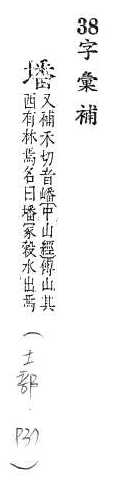 38字彙補
墦 又補禾切音嶓〔中〕山經傅山其
西有林焉名曰墦冢穀水出焉
(土部.P37)